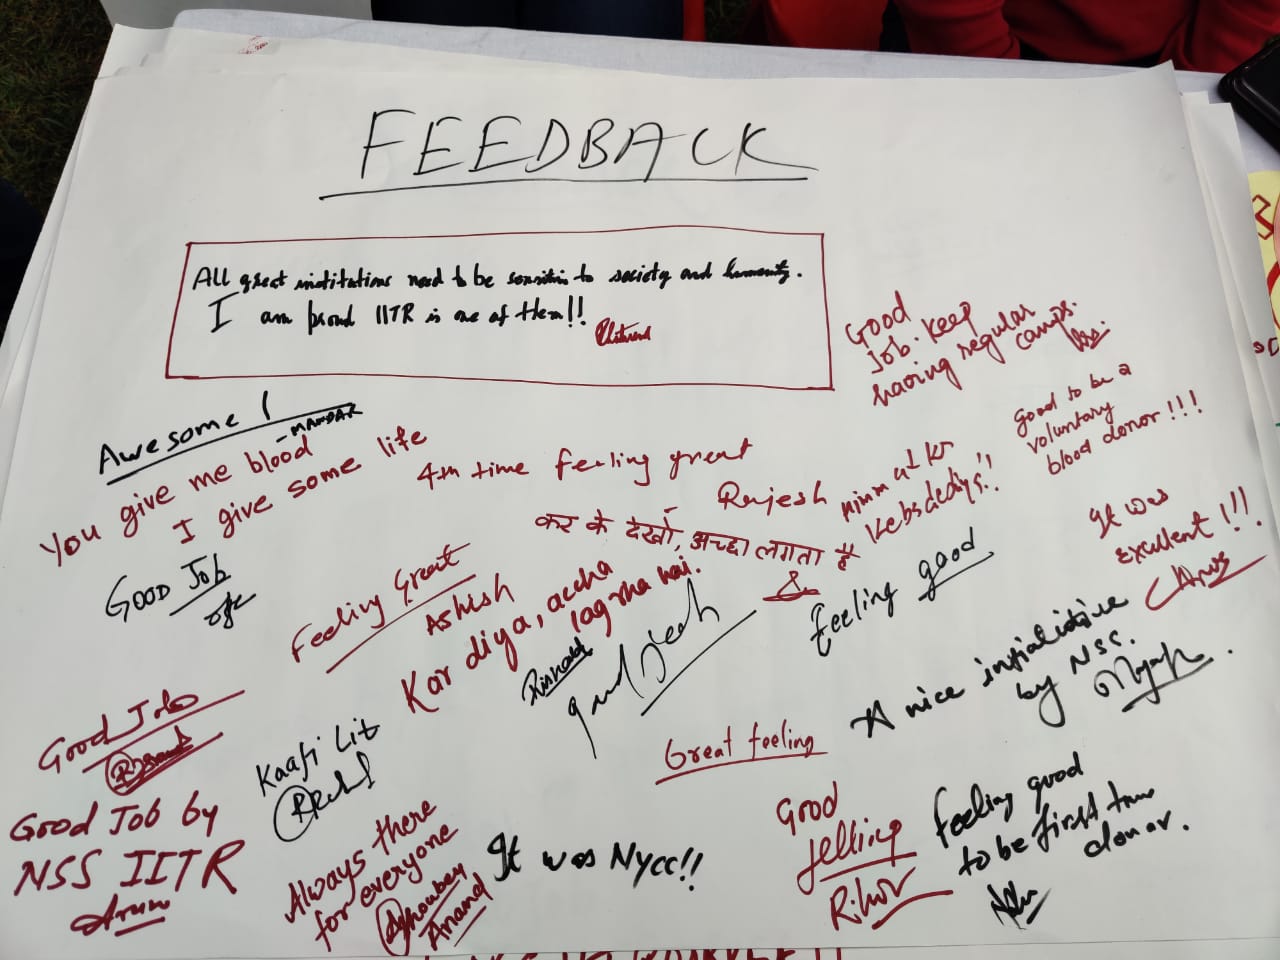 FEEDBACK
All great institutions need to be sensitive to society and humanity.
I am proud IITR is one of them!!
Good
Job. Keep
having regular
camps.
Awesome!
- MANDAR
You give me blood
I give some life
4th time feeling great
Rajesh
कर के देखो, अच्छा लगता है
Mimm at kr
Kebsdediya!!
Good to be a
voluntary
blood donor!!!
It was
excellent!!!
GOOD JOB
Feeling Great
Ashish
Kar diya, accha
lag rha hai.
Rishabh
Feeling good
A nice initialitive
by NSS.
Good Job
Kaafi Lit
Great feeling
Good Job by
NSS IITR
Arun
Always there
for everyone
Anand
It was Nycc!!
Good
felling
Feeling good
to be first time
donor.